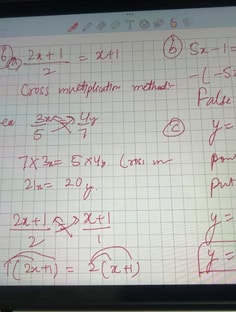 (a) 2x+1/2 = x+1
Cross multiplication method
ex 3x/5 = 4y/7
7×3x = 5×4y
21x = 20y
2x+1/2 = x+1/1
1(2x+1) = 2(x+1)
(b) 5x-1=
-(-5x
False
(c)
y=
put
y=
y=